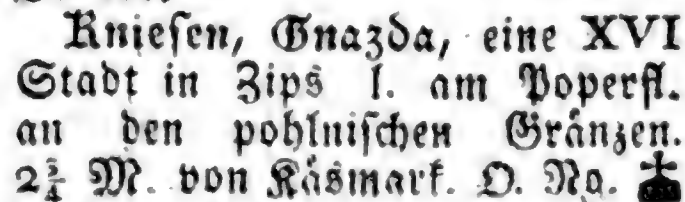 Kniesen, Gnazda, eine XVI
Stadt in Zips l. am Poperfl.
an den pohlnischen Gränzen.
2¾ M. von Käsmark. O. Nq.